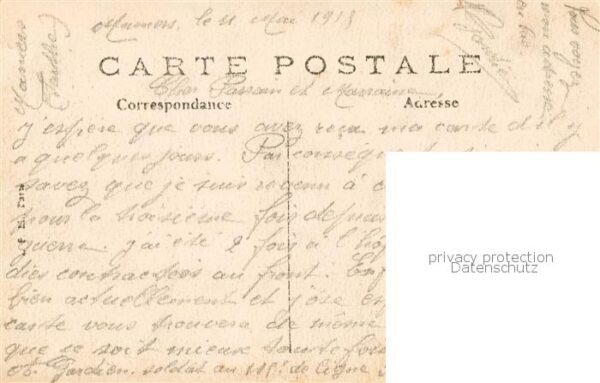 Mamers, le 11 Mai 1915
CARTE POSTALE
Cher Parrain et Marraine
Correspondance
Adresse
J'espère que vous avez reçu ma carte d'il y
a quelques jours. Par conséquent
savez que je suis revenu à
pour la troisième fois depuis
guerre. j'ai été 2 fois à l'hôp
dies contractées au front. Enf
bien actuellement et j'ose esp
carte vous trouvera de même
que ce soit mieux toutefois
Gardien soldat au 115e de ligne
Mamers
Sarthe
vous voyez
mon adresse
Paris
privacy protection
Datenschutz